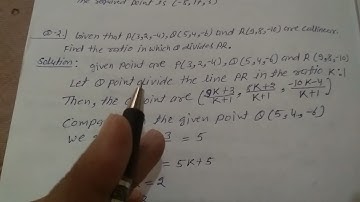 the second point is (-8,17,3)
Q-2.) Given that P(3,2,-4), Q(5,4,-6) and R(9,8,-10) are collinear.
Find the ratio in which Q divides PR.
Solution: given point are P(3,2,-4), Q(5,4,-6) and R(9,8,-10)
Let Q point divide the line PR in the ratio K:1
Then, the Q point are (9K+3/K+1, 8K+2/K+1, -10K-4/K+1)
Compa the given point Q(5,4,-6)
we 3 = 5
= 5K+5
= 2